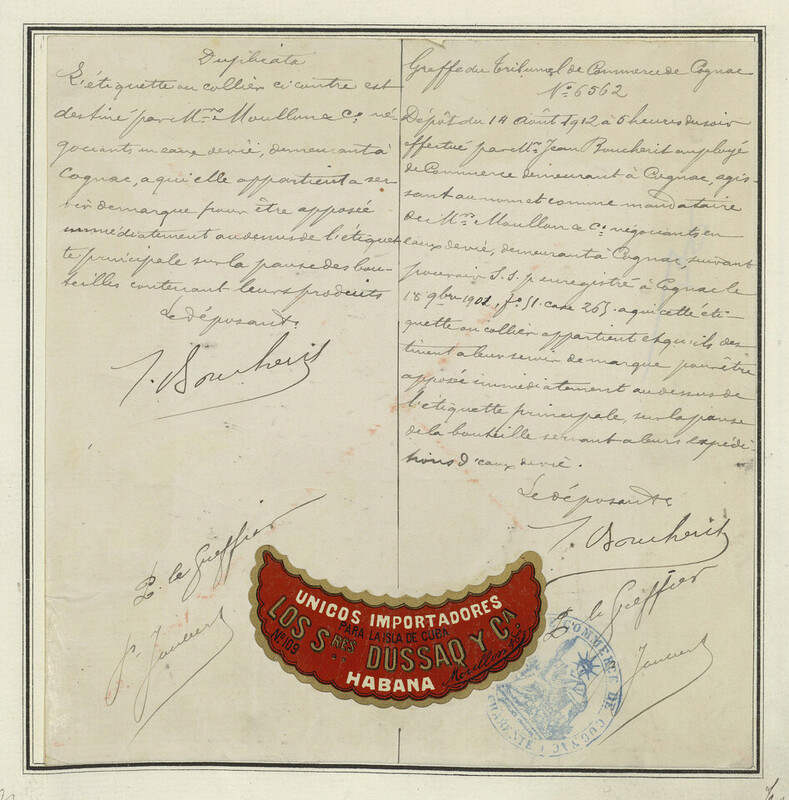 Duplicata
L'étiquette ou collier ci contre est
destiné par Mrs Moullon & Co né-
gociants en eaux de vie, demeurant à
Cognac, a qui elle appartient a ser
vir de marque pour être apposée
immédiatement au dessus de l'étiquet
te principale sur la panse des bou-
teilles contenant leurs produits
Le déposant.
J. Boucherit
P. le Greffier
Greffe du Tribunal de Commerce de Cognac
No 6562
Dépôt du 14 Août 1912 à 5 heures du soir
effectué par Mr Jean Boucherit employé
de Commerce demeurant à Cognac, agis-
sant au nom et comme mandataire
de Mrs Moullon & Co négociants en
eaux de vie, demeurant à Cognac, suivant
pouvoir S.S.p. enregistré à Cognac le
18 9bre 1901, fo 51 case 265. a qui cette éti-
quette ou collier appartient et qu'ils des
tinent a leur servir de marque pour être
apposée immédiatement au dessus de
l'étiquette principale, sur la panse
de la bouteille servant a leurs expédi-
tions d'eaux de vie.
Le déposant
J. Boucherit
P. le Greffier
UNICOS IMPORTADORES
PARA LA ISLA DE CUBA
LOS SRES DUSSAQ Y CA
No 109
HABANA
Moullon & Co
COMMERCE DE COGNAC
CHARENTE